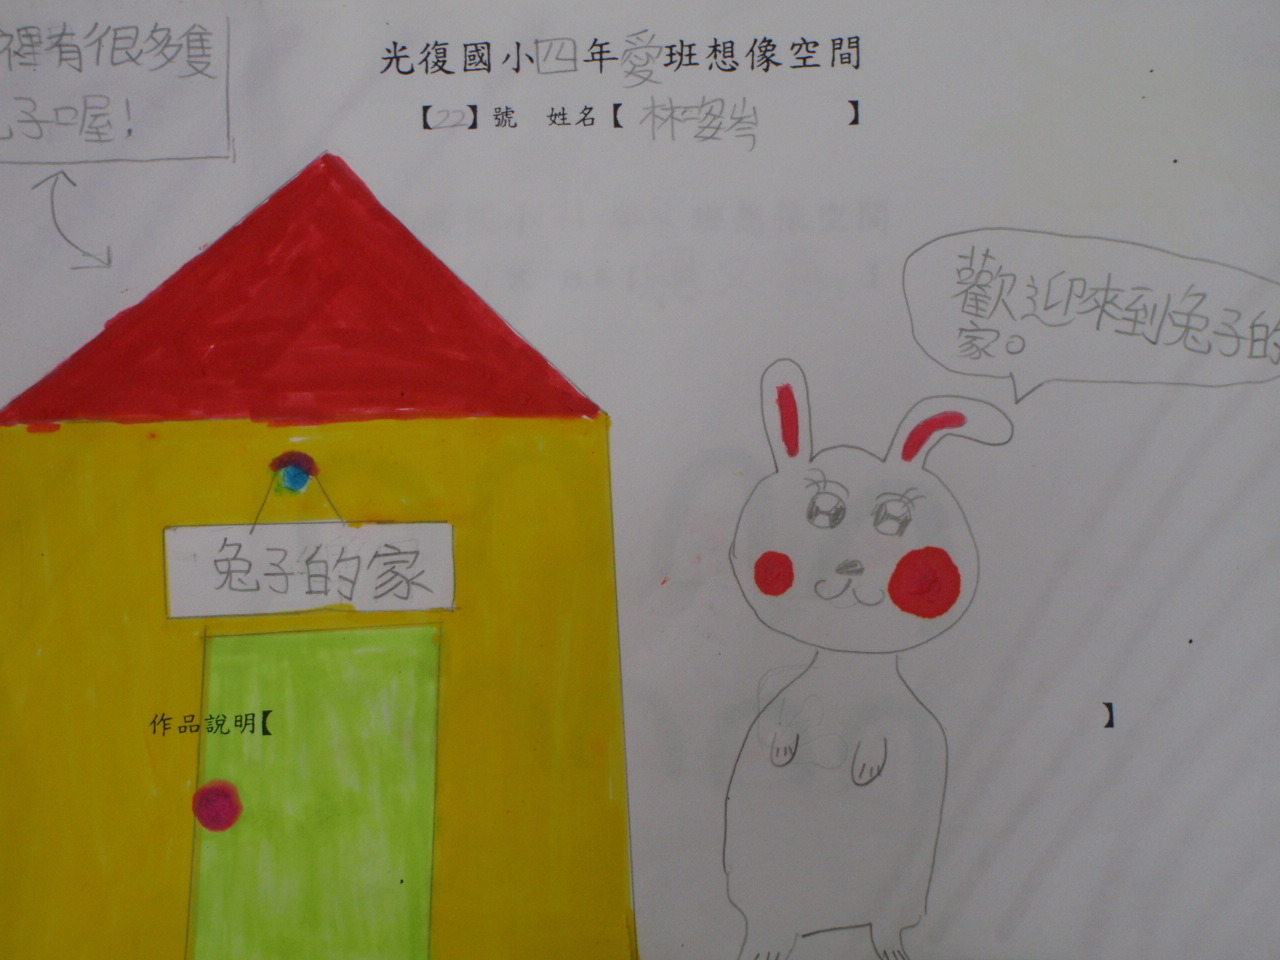 裡有很多隻
子喔!
光復國小四年愛班想像空間
【22】號 姓名【林姿岑】
歡迎來到兔子的
家。
兔子的家
作品說明【 】